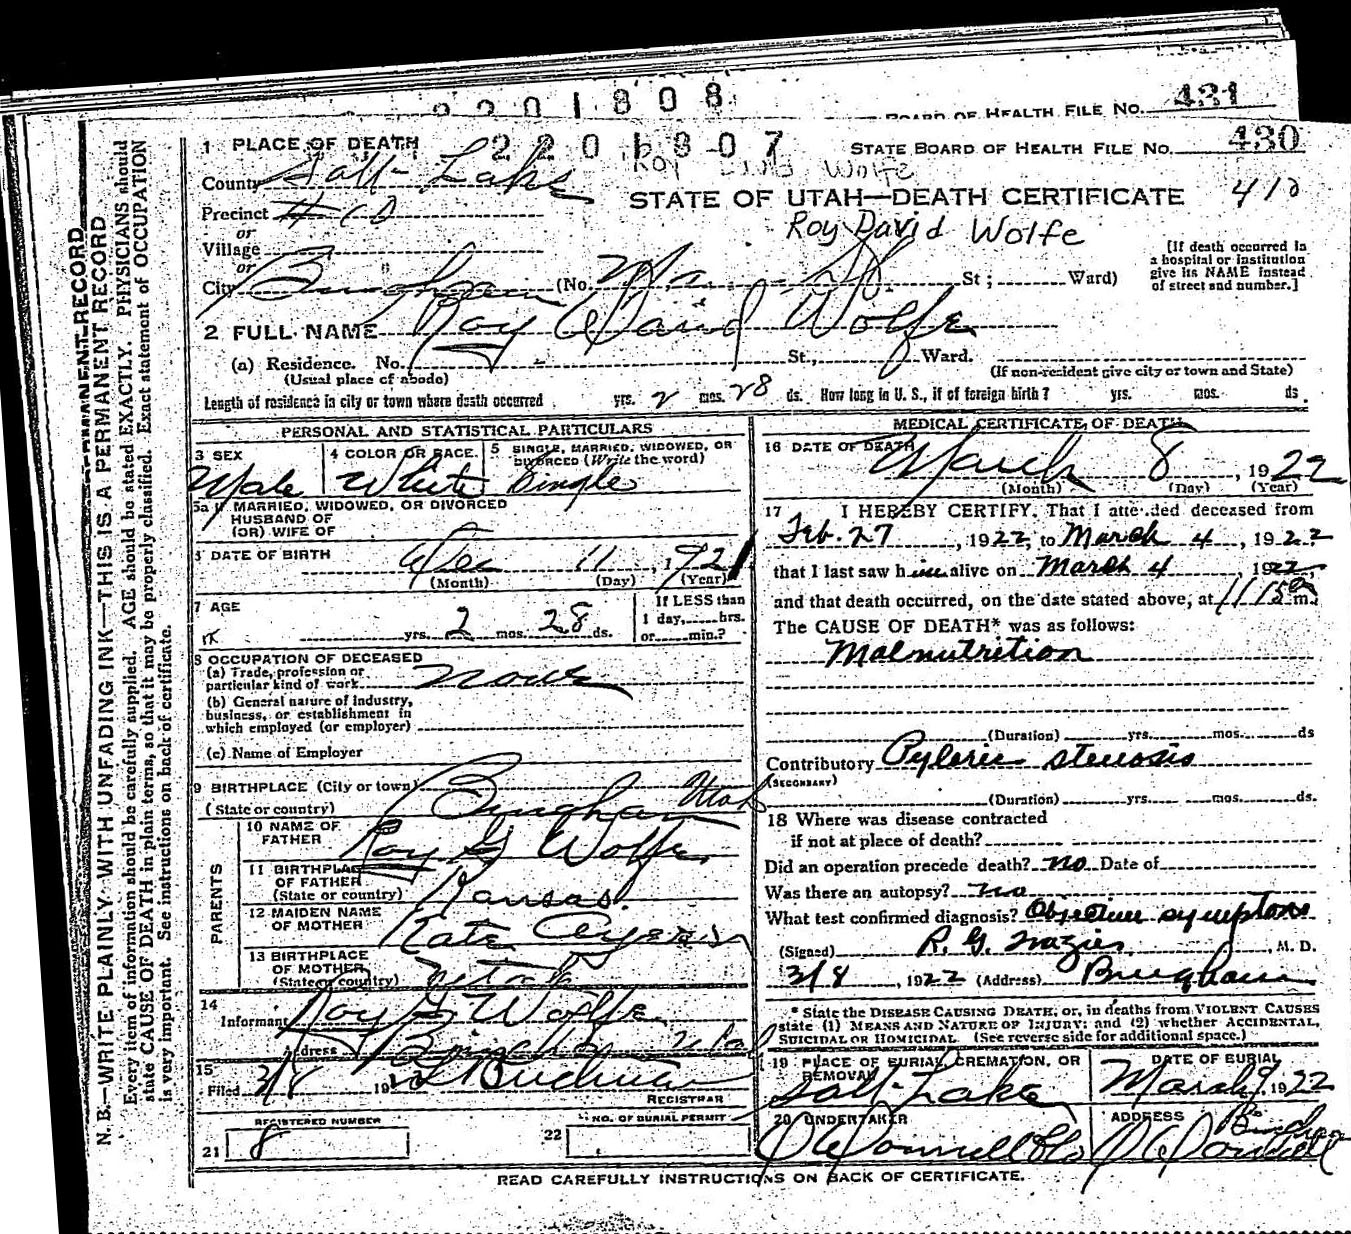 2201808
BOARD OF HEALTH FILE NO. 431
1 PLACE OF DEATH 2201807 STATE BOARD OF HEALTH FILE NO. 430
Roy David Wolfe
County Salt Lake
STATE OF UTAH—DEATH CERTIFICATE 410
Precinct
or
Roy David Wolfe
Village
or
[If death occurred in
a hospital or institution
give its NAME instead
of street and number.]
City Bingham (No. Main St St; Ward)
2 FULL NAME Roy David Wolfe
(a) Residence. No. St., Ward.
(Usual place of abode) (If non-resident give city or town and State)
Length of residence in city or town where death occurred yrs. 2 mos. 28 ds. How long in U. S., if of foreign birth? yrs. mos. ds
N. B.—WRITE PLAINLY WITH UNFADING INK—THIS IS A PERMANENT RECORD
Every item of information should be carefully supplied. AGE should be stated EXACTLY. PHYSICIANS should
state CAUSE OF DEATH in plain terms, so that it may be properly classified. Exact statement of OCCUPATION
is very important. See instructions on back of certificate.
PERMANENT RECORD
PERSONAL AND STATISTICAL PARTICULARS
3 SEX Male
4 COLOR OR RACE. White
5 SINGLE, MARRIED, WIDOWED, OR
DIVORCED (Write the word)
Single
5a If MARRIED, WIDOWED, OR DIVORCED
HUSBAND OF
(OR) WIFE OF
6 DATE OF BIRTH Dec 11, 1921
(Month) (Day) (Year)
7 AGE yrs. 2 mos. 28 ds.
If LESS than
1 day, hrs.
or min.?
8 OCCUPATION OF DECEASED
(a) Trade, profession or
particular kind of work none
(b) General nature of industry,
business, or establishment in
which employed (or employer)
(c) Name of Employer
9 BIRTHPLACE (City or town) Bingham Utah
(State or country)
PARENTS
10 NAME OF
FATHER Roy G Wolfe
11 BIRTHPLACE
OF FATHER
(State or country) Kansas.
12 MAIDEN NAME
OF MOTHER Kate
13 BIRTHPLACE
OF MOTHER
(State or country)
14
Informant Roy G Wolfe
Address Bingham Utah
15
Filed 3/8 19
REGISTRAR
REGISTERED NUMBER
21 8
NO. OF BURIAL PERMIT
22
MEDICAL CERTIFICATE OF DEATH
16 DATE OF DEATH March 8, 1922
(Month) (Day) (Year)
17 I HEREBY CERTIFY, That I attended deceased from
Feb. 27, 1922, to March 4, 1922
that I last saw him alive on March 4 1922
and that death occurred, on the date stated above, at 11 15 m.
The CAUSE OF DEATH* was as follows:
Malnutrition
(Duration) yrs. mos. ds
Contributory Pyloric stenosis
(SECONDARY)
(Duration) yrs. mos. ds.
18 Where was disease contracted
if not at place of death?
Did an operation precede death? no Date of
Was there an autopsy? no
What test confirmed diagnosis? Objective symptoms
(Signed) R. G. Frazier, M. D.
3/8, 1922 (Address) Bingham
* State the DISEASE CAUSING DEATH, or, in deaths from VIOLENT CAUSES
state (1) MEANS AND NATURE OF INJURY; and (2) whether ACCIDENTAL,
SUICIDAL OR HOMICIDAL (See reverse side for additional space.)
19 PLACE OF BURIAL, CREMATION, OR
REMOVAL
Salt Lake
DATE OF BURIAL
March 9, 1922
20 UNDERTAKER
O'Donnell & Co
ADDRESS Bingham
READ CAREFULLY INSTRUCTIONS ON BACK OF CERTIFICATE.